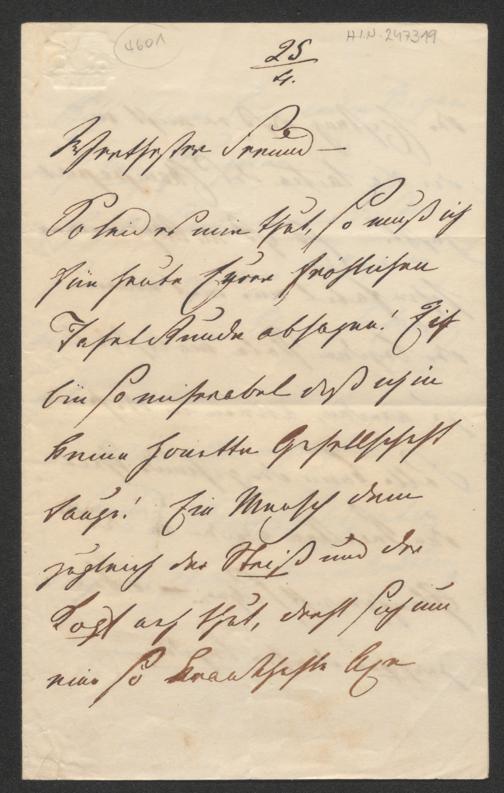 4601
H.I.N. 247319
25
4.
Werthester Freund –
So leid es mir thut, so muß ich
für heute Ihrer fröhlichen
Tafelrunde absagen! Ich
bin so miserabel daß ich in
keine honette Gesellschaft
tauge! Ein Mensch dem
zugleich der Steiß und der
Kopf weh thut, dreht sich um
eine so krankhafte Axe